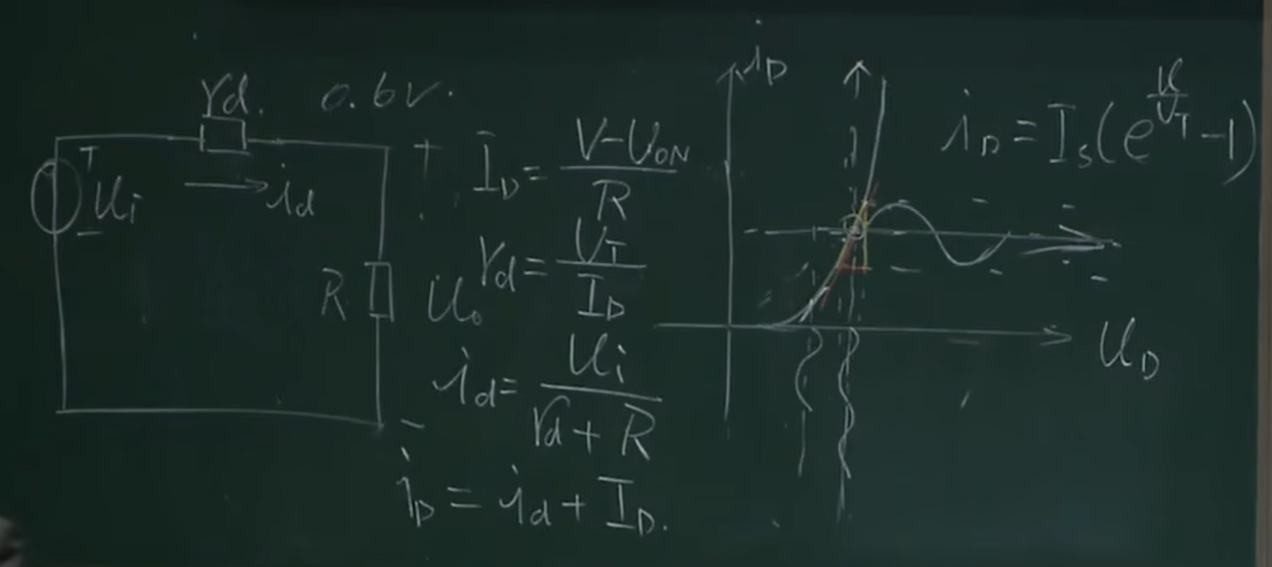 rd. 0.6V.
+ ui − → id
R
+ uo −
ID = (V−UON)/R
rd = UT/ID
id = ui/(rd + R)
iD = id + ID.
iD
uD
iD = Is(e^(u/UT) −1)